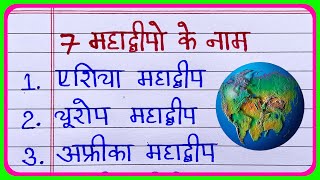 7 महाद्वीपो के नाम
1. एशिया महाद्वीप
2. यूरोप महाद्वीप
3. अफ्रीका महाद्वीप